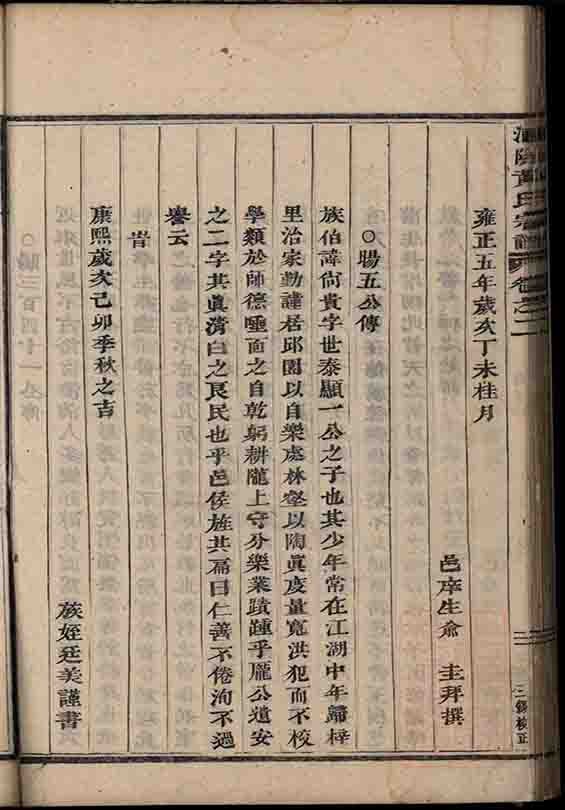 陰黃氏宗譜 卷之二
三修校正
雍正五年歲次丁未桂月
邑庠生俞 圭拜撰
○賜五公傳
族伯諱尙貴字世泰顯一公之子也其少年常在江湖中年歸梓
里治家勤謹居邱園以自樂處林壑以陶眞度量寬洪犯而不校
學類於師德唾面之自乾躬耕隴上守分樂業蹟踵乎龐公遺安
之二字共眞淸白之良民也乎邑侯旌其扁曰仁善不倦洵不過
譽云
旹
康熙歲次己卯季秋之吉
族姪廷美謹書